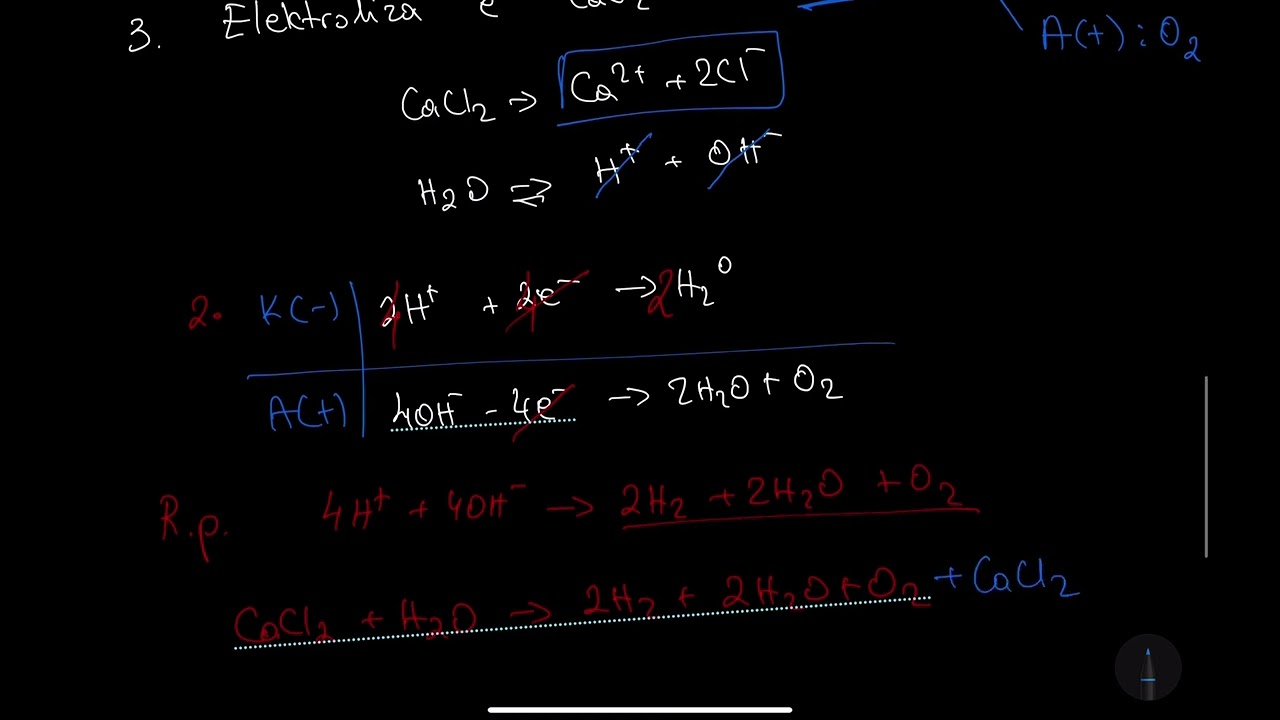 3. Elektroliza e
A(+) : O₂
CaCl₂ → Ca²⁺ + 2Cl⁻
H₂O ⇌ H⁺ + OH⁻
2. K(-) | H⁺ + e⁻ → 2H₂⁰
A(+) | 4OH⁻ - 4e⁻ → 2H₂O + O₂
R.p. 4H⁺ + 4OH⁻ → 2H₂ + 2H₂O + O₂
CaCl₂ + H₂O → 2H₂ + 2H₂O + O₂ + CaCl₂